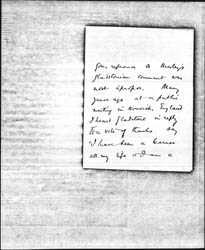 Your reference to Huxley's
Gladstonian comment was
most apropos. Many
years ago at a public
meeting in Norwich, England
I heard Gladstone in reply
to a vote of thanks say
"I have been a learner
all my life & I am a